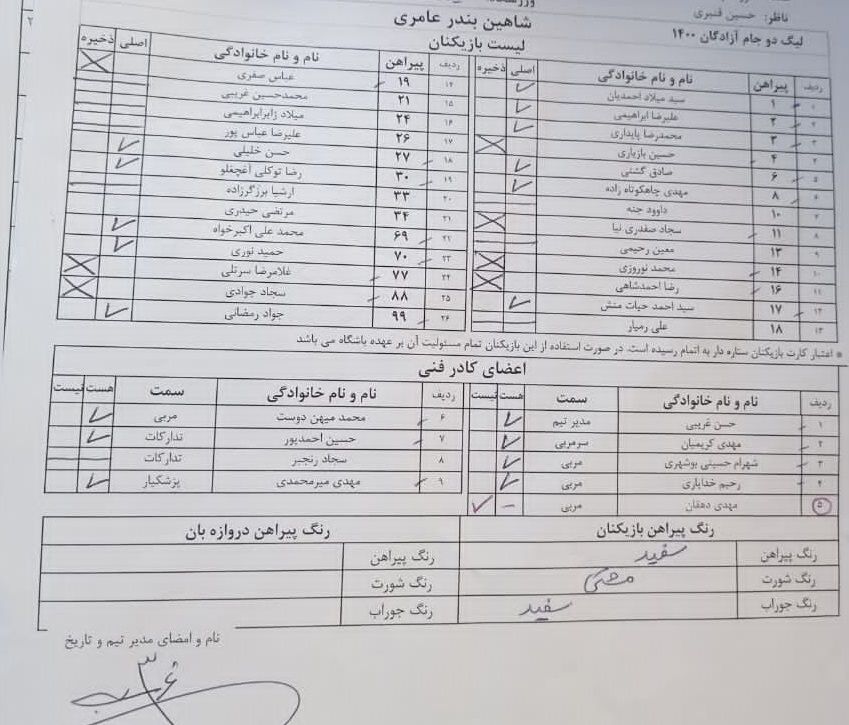 ناظر: حسین قنبری
لیگ دو جام آزادگان ۱۴۰۰
شاهین بندر عامری
لیست بازیکنان
ردیف پیراهن نام و نام خانوادگی اصلی ذخیره
۱ ۱ سید میلاد احمدیان
۲ ۲ علیرضا ابراهیمی
۳ ۳ محمدرضا پایداری
۴ ۴ حسین بازیاری
۵ ۶ صادق گشنی
۶ ۸ مهدی چاهکوتاه زاده
۷ ۱۰ داوود جنه
۸ ۱۱ سجاد صفدری نیا
۹ ۱۳ معین رحیمی
۱۰ ۱۴ محمد نوروزی
۱۱ ۱۶ رضا احمدشاهی
۱۲ ۱۷ سید احمد حیات منش
۱۳ ۱۸ علی رمیار
ردیف پیراهن نام و نام خانوادگی اصلی ذخیره
۱۴ ۱۹ عباس صفری
۱۵ ۲۱ محمدحسین غریبی
۱۶ ۲۴ میلاد زایرابراهیمی
۱۷ ۲۶ علیرضا عباس پور
۱۸ ۲۷ حسن خلیلی
۱۹ ۳۰ رضا توکلی آغچغلو
۲۰ ۳۳ ارشیا برزگرزاده
۲۱ ۳۴ مرتضی حیدری
۲۲ ۶۹ محمد علی اکبرخواه
۲۳ ۷۰ حمید نوری
۲۴ ۷۷ غلامرضا سرتلی
۲۵ ۸۸ سجاد جوادی
۲۶ ۹۹ جواد رمضانی
* اعتبار کارت بازیکنان ستاره دار به اتمام رسیده است. در صورت استفاده از این بازیکنان تمام مسئولیت آن بر عهده باشگاه می باشد
اعضای کادر فنی
ردیف نام و نام خانوادگی سمت هست نیست
۱ حسن غریبی مدیر تیم
۲ مهدی کریمیان سرمربی
۳ شهرام حسینی بوشهری مربی
۴ رحیم خدایاری مربی
۵ مهدی دهقان مربی
ردیف نام و نام خانوادگی سمت هست نیست
۶ محمد میهن دوست مربی
۷ حسین احمدپور تدارکات
۸ سجاد رنجبر تدارکات
۹ مهدی میرمحمدی پزشکیار
رنگ پیراهن بازیکنان رنگ پیراهن دروازه بان
رنگ پیراهن سفید رنگ پیراهن
رنگ شورت مشکی رنگ شورت
رنگ جوراب سفید رنگ جوراب
نام و امضای مدیر تیم و تاریخ